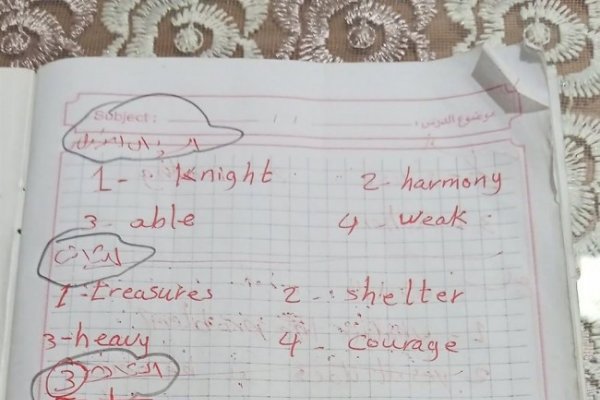 Subject: موضوع الدرس:
السؤال الأول
1- Knight 2- harmony
3- able 4- weak
1- treasures 2- shelter
3-heavy 4- courage
3